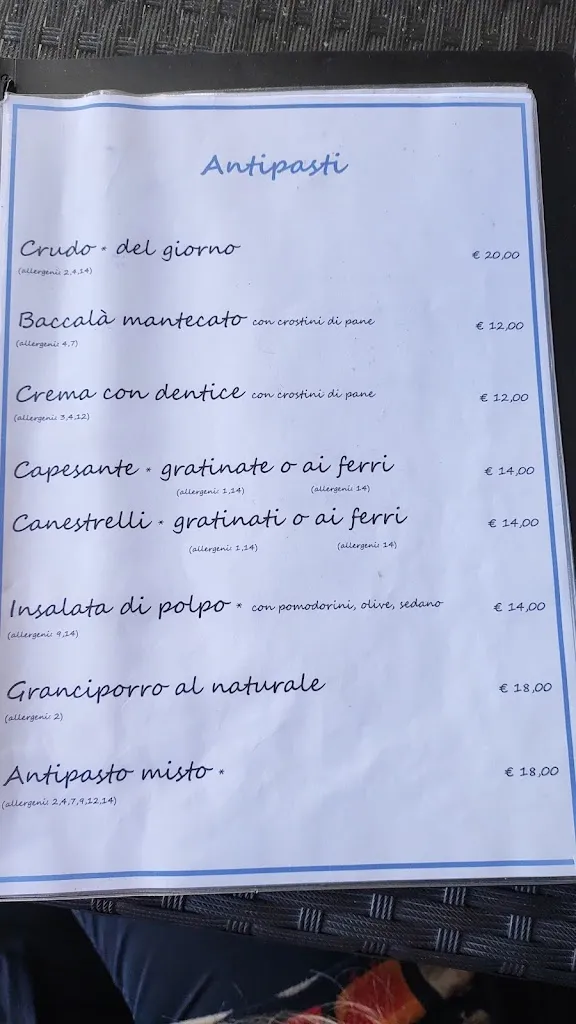 Antipasti
Crudo * del giorno € 20,00
(allergeni: 2,4,14)
Baccalà mantecato con crostini di pane € 12,00
(allergeni: 4,7)
Crema con dentice con crostini di pane € 12,00
(allergeni: 3,4,12)
Capesante * gratinate o ai ferri € 14,00
(allergeni: 1,14) (allergeni: 14)
Canestrelli * gratinati o ai ferri € 14,00
(allergeni: 1,14) (allergeni: 14)
Insalata di polpo * con pomodorini, olive, sedano € 14,00
(allergeni: 9,14)
Granciporro al naturale € 18,00
(allergeni: 2)
Antipasto misto * € 18,00
(allergeni: 2,4,7,9,12,14)